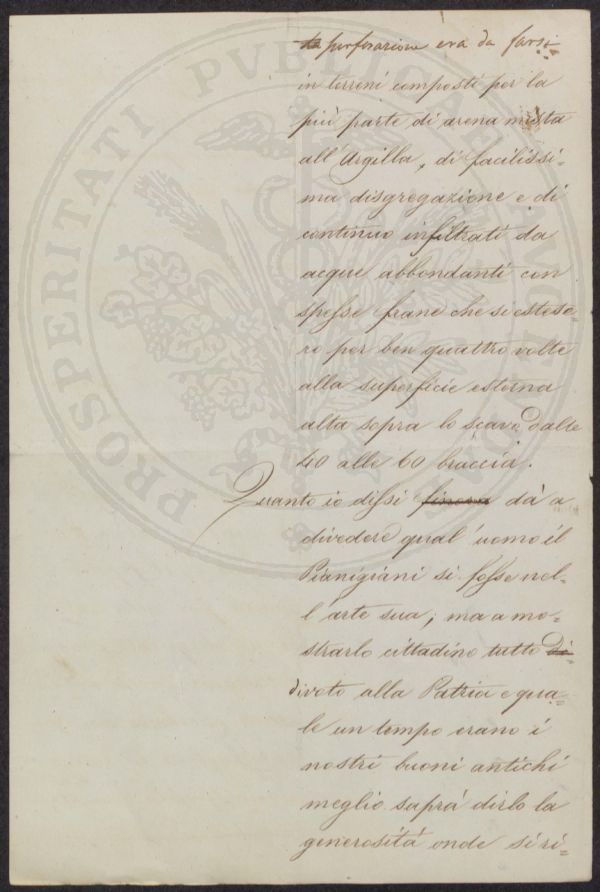 ~~la~~ perforazione era da farsi
in terreni composti per la
più parte di arena mista
all'Argilla, di facilissi-
ma disgregazione e di
continuo infiltrati da
acque abbondanti con
spesse frane che si estese-
ro per ben quattro volte
alla superficie esterna
alta sopra lo scavo dalle
40 alle 60 braccia.
Quanto io dissi ~~finora~~ dà a
divedere qual'uomo il
Pianigiani si fosse nel-
l'arte sua; ma a mo-
strarlo cittadino tutto ~~di-~~
divoto alla Patria e qua-
le un tempo erano i
nostri buoni antichi
meglio saprà dirlo la
generosità onde si ri-
PROSPERITATI PVBLICAE AVGENDAE